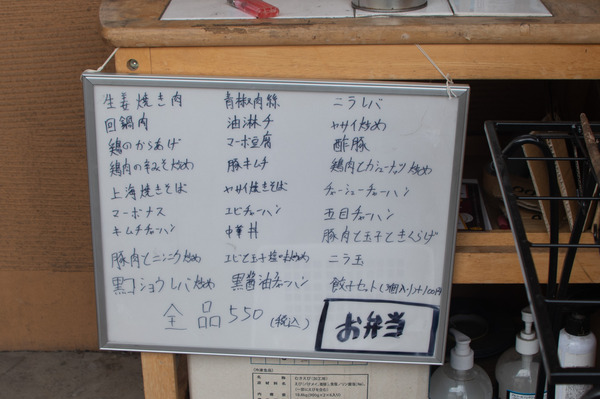 生姜焼き肉
回鍋肉
鶏のからあげ
鶏肉の辛みそ炒め
上海焼きそば
マーボナス
キムチチャーハン
豚肉とニンニク炒め
黒コショウレバ炒め
青椒肉絲
油淋チ
マーボ豆腐
豚キムチ
ヤサイ焼きそば
エビチャーハン
中華丼
エビと玉子塩炒め
黒醤油チャーハン
ニラレバ
ヤサイ炒め
酢豚
鶏肉とカシューナッツ炒め
チャーシューチャーハン
五目チャーハン
豚肉と玉子ときくらげ
ニラ玉
餃子セット(3個入り)+100円
全品550(税込)
お弁当